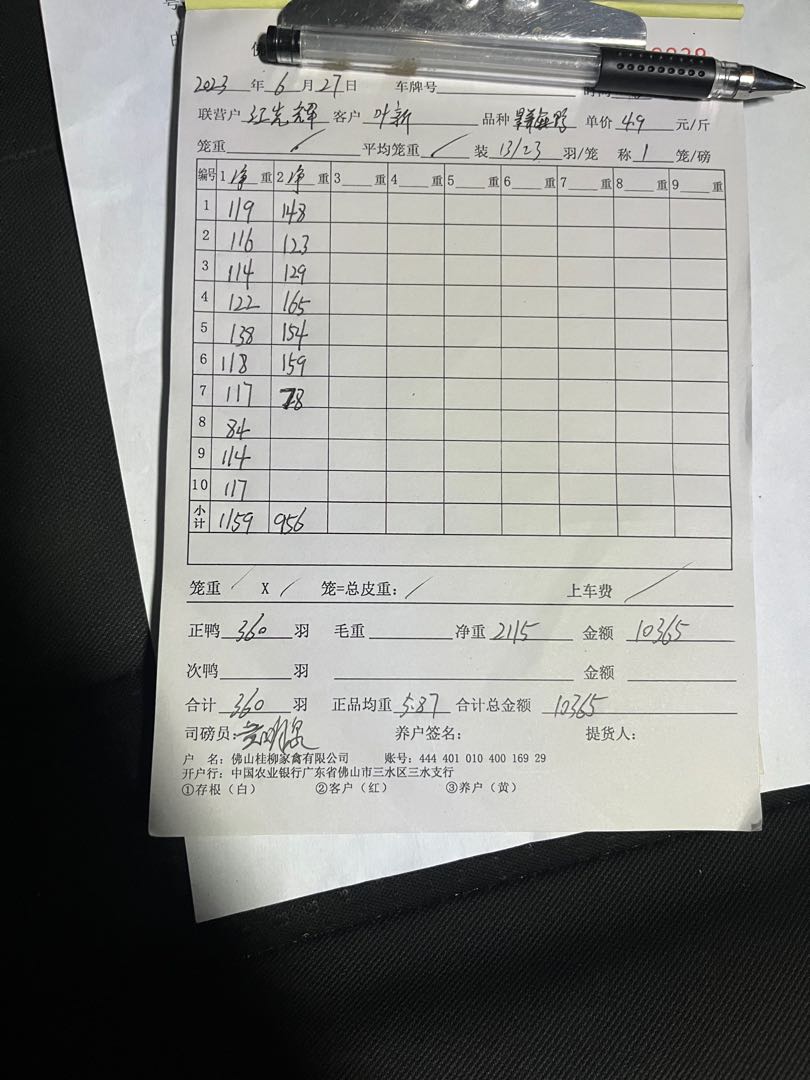 2023 年 6 月 27 日 车牌号
联营户 江先辉 客户 叶新 品种 单价 4.9 元/斤
笼重 / 平均笼重 / 装 13/23 羽/笼 称 1 笼/磅
编号 1 净 重 2 净 重 3 重 4 重 5 重 6 重 7 重 8 重 9 重
1 119 148
2 116 123
3 114 129
4 122 165
5 138 154
6 118 159
7 117 78
8 84
9 114
10 117
小计 1159 956
笼重 / X / 笼=总皮重: / 上车费 /
正鸭 360 羽 毛重 净重 2115 金额 10365
次鸭 羽 金额
合计 360 羽 正品均重 5.87 合计总金额 10365
司磅员: 养户签名: 提货人:
户 名: 佛山桂柳家禽有限公司 账号: 444 401 010 400 169 29
开户行: 中国农业银行广东省佛山市三水区三水支行
①存根（白） ②客户（红） ③养户（黄）